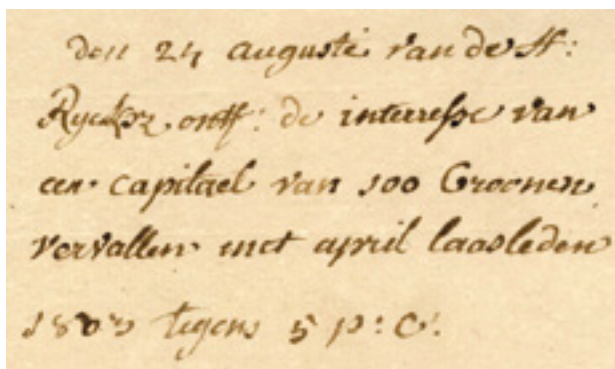 den 24 auguste van de H:
ontf: de interesse van
een capitael van 100 Croonen
vervallen met april laasleden
tegens 5 p: C: